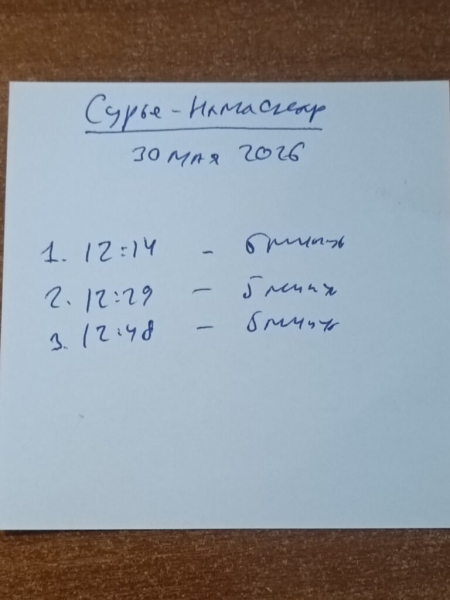 Сурье-Намаскар
30 мая 2026
1. 12:14 – 6 минут
2. 12:29 – 5 минут
3. 12:48 – 6 минут